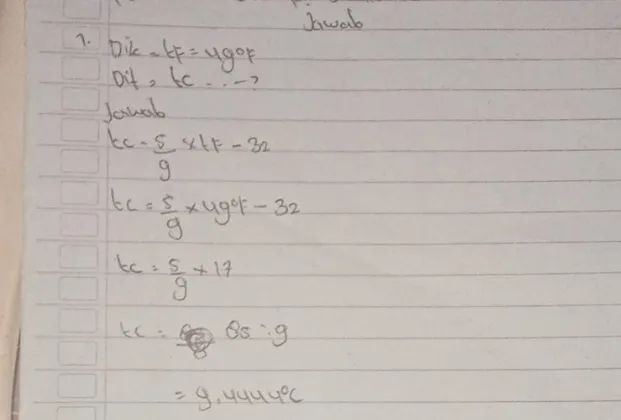 Jawab
1. Dik = tF = 49°F
Dit = tc ...?
Jawab
tc = 5/9 x tF - 32
tc = 5/9 x 49°F - 32
tc = 5/9 x 17
tc = 85 : 9
= 9,4444°C